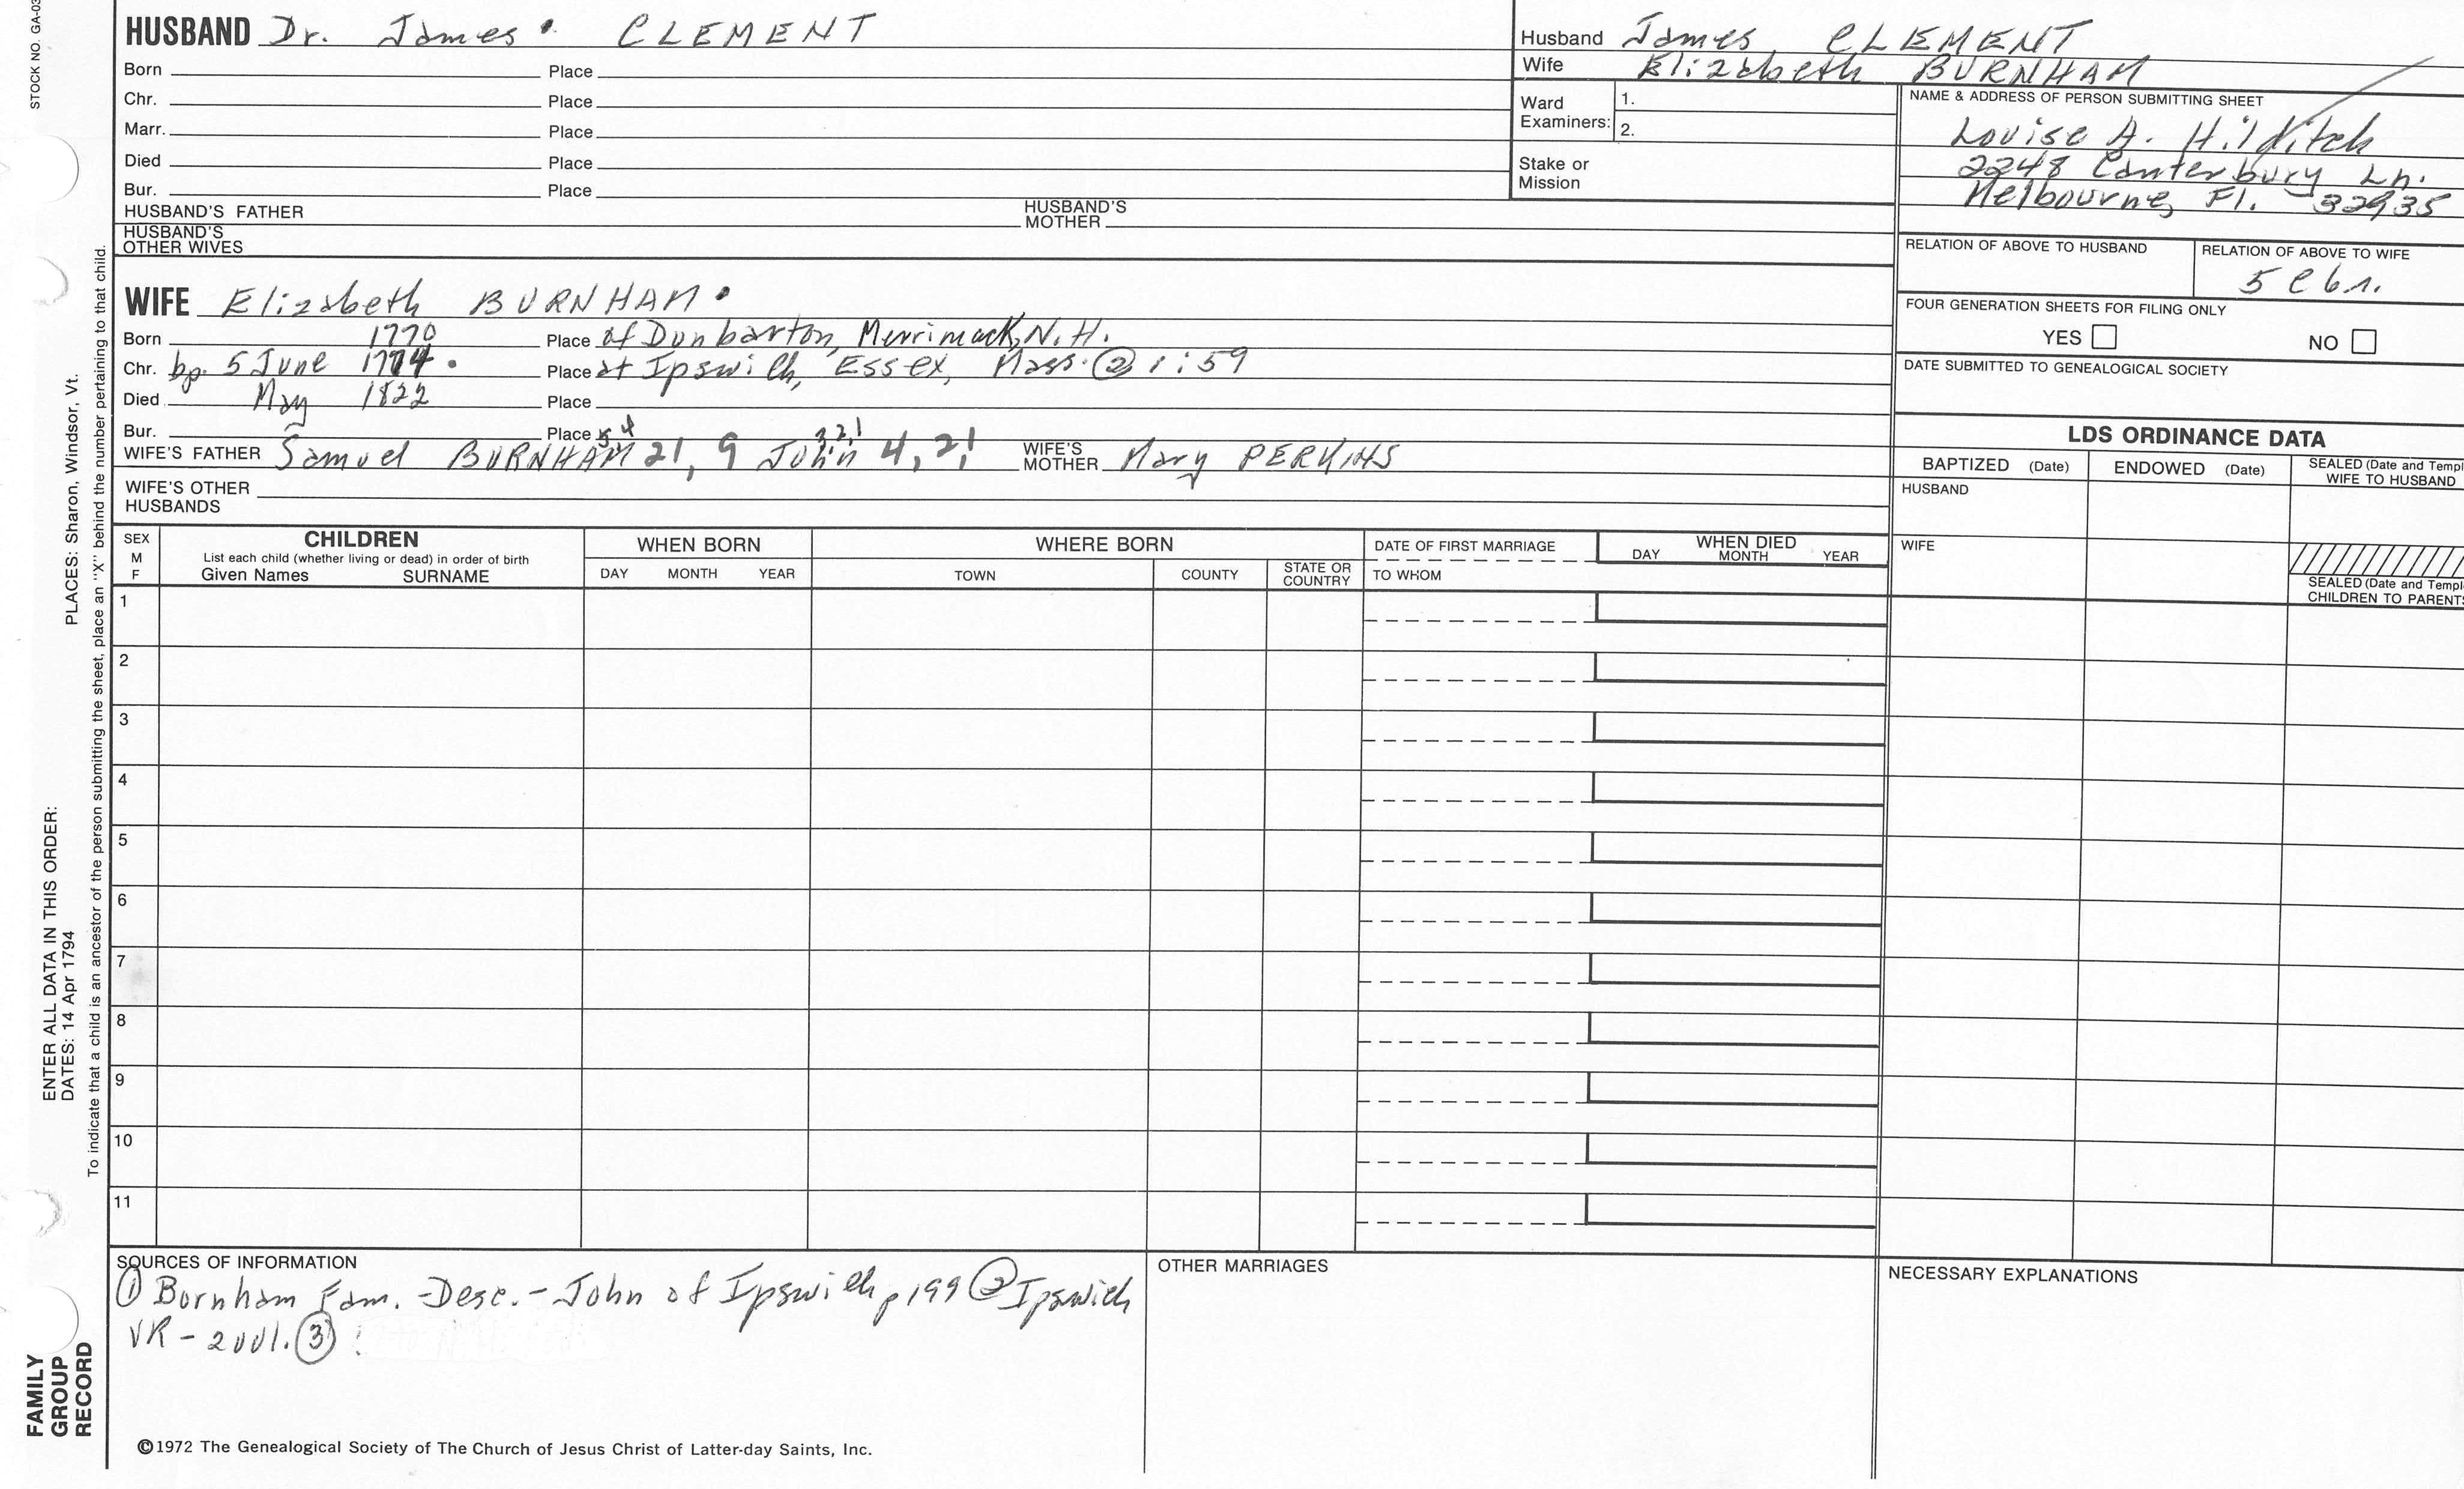 STOCK NO. GA-03
HUSBAND Dr. James CLEMENT
Born Place
Chr. Place
Marr. Place
Died Place
Bur. Place
HUSBAND'S FATHER HUSBAND'S MOTHER
HUSBAND'S OTHER WIVES
Husband James CLEMENT
Wife Elizabeth BURNHAM
Ward Examiners: 1.
2.
Stake or Mission
NAME & ADDRESS OF PERSON SUBMITTING SHEET
Louise A. Hilditch
2248 Canterbury Ln.
Melbourne, Fl. 32935
RELATION OF ABOVE TO HUSBAND RELATION OF ABOVE TO WIFE
FOUR GENERATION SHEETS FOR FILING ONLY
YES NO
DATE SUBMITTED TO GENEALOGICAL SOCIETY
WIFE Elizabeth BURNHAM
Born 1770 Place of Dunbarton, Merrimack, N.H.
Chr. bp. 5 June 1774 Place at Ipswich, Essex, Mass. ② 1:59
Died May 1822 Place
Bur. Place
WIFE'S FATHER Samuel BURNHAM 21, 9 John 4, 2, 1 WIFE'S MOTHER Mary PERKINS
WIFE'S OTHER HUSBANDS
LDS ORDINANCE DATA
BAPTIZED (Date) ENDOWED (Date) SEALED (Date and Templ
WIFE TO HUSBAND
HUSBAND
WIFE
SEALED (Date and Templ
CHILDREN TO PARENTS
SEX M F
CHILDREN
List each child (whether living or dead) in order of birth
Given Names SURNAME
WHEN BORN
DAY MONTH YEAR
WHERE BORN
TOWN COUNTY STATE OR COUNTRY
DATE OF FIRST MARRIAGE
TO WHOM
WHEN DIED
DAY MONTH YEAR
1
2
3
4
5
6
7
8
9
10
11
SOURCES OF INFORMATION
① Burnham Fam. - Desc. - John of Ipswich p 199 ② Ipswich
VR - 2 vol. ③
OTHER MARRIAGES
NECESSARY EXPLANATIONS
©1972 The Genealogical Society of The Church of Jesus Christ of Latter-day Saints, Inc.
FAMILY GROUP RECORD
ENTER ALL DATA IN THIS ORDER:
DATES: 14 Apr 1794 PLACES: Sharon, Windsor, Vt.
To indicate that a child is an ancestor of the person submitting the sheet, place an "X" behind the number pertaining to that child.